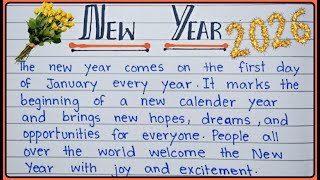 New Year 2026
The new year comes on the first day
of January every year. It marks the
beginning of a new calender year
and brings new hopes, dreams, and
opportunities for everyone. People all
over the world welcome the New
Year with joy and excitement.